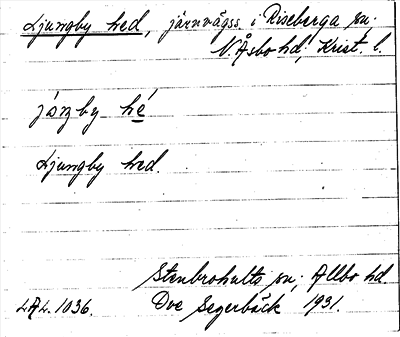 Ljungby hed, järnvägss. i Riseberga sn.
N. Åsbo hd, Krist. l.
jóŋby hé
Ljungby hed.
Stenbrohults sn, Allbo hd.
LAL. 1036. Ove Segerbäck 1931.